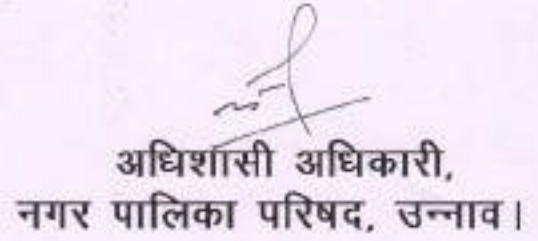 अधिशासी अधिकारी,
नगर पालिका परिषद, उन्नाव।